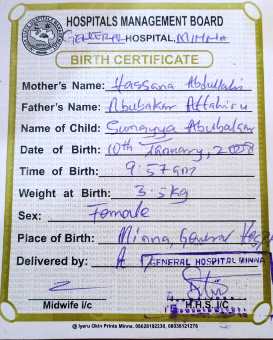 HOSPITALS MANAGEMENT BOARD
GENERAL HOSPITAL, MINNA
BIRTH CERTIFICATE
Mother's Name: Hassana Abdullahi
Father's Name: Abubakar Attahiru
Name of Child: Sumayya Abubakar
Date of Birth: 10th January,
Time of Birth: 9:57am
Weight at Birth: 3.5kg
Sex: Female
Place of Birth: Minna General
Delivered by: A GENERAL HOSPITAL MINNA
Midwife i/c H.H.S. I/C
@ Iyeru Okin Prints Minna. 08628192230, 08036121276